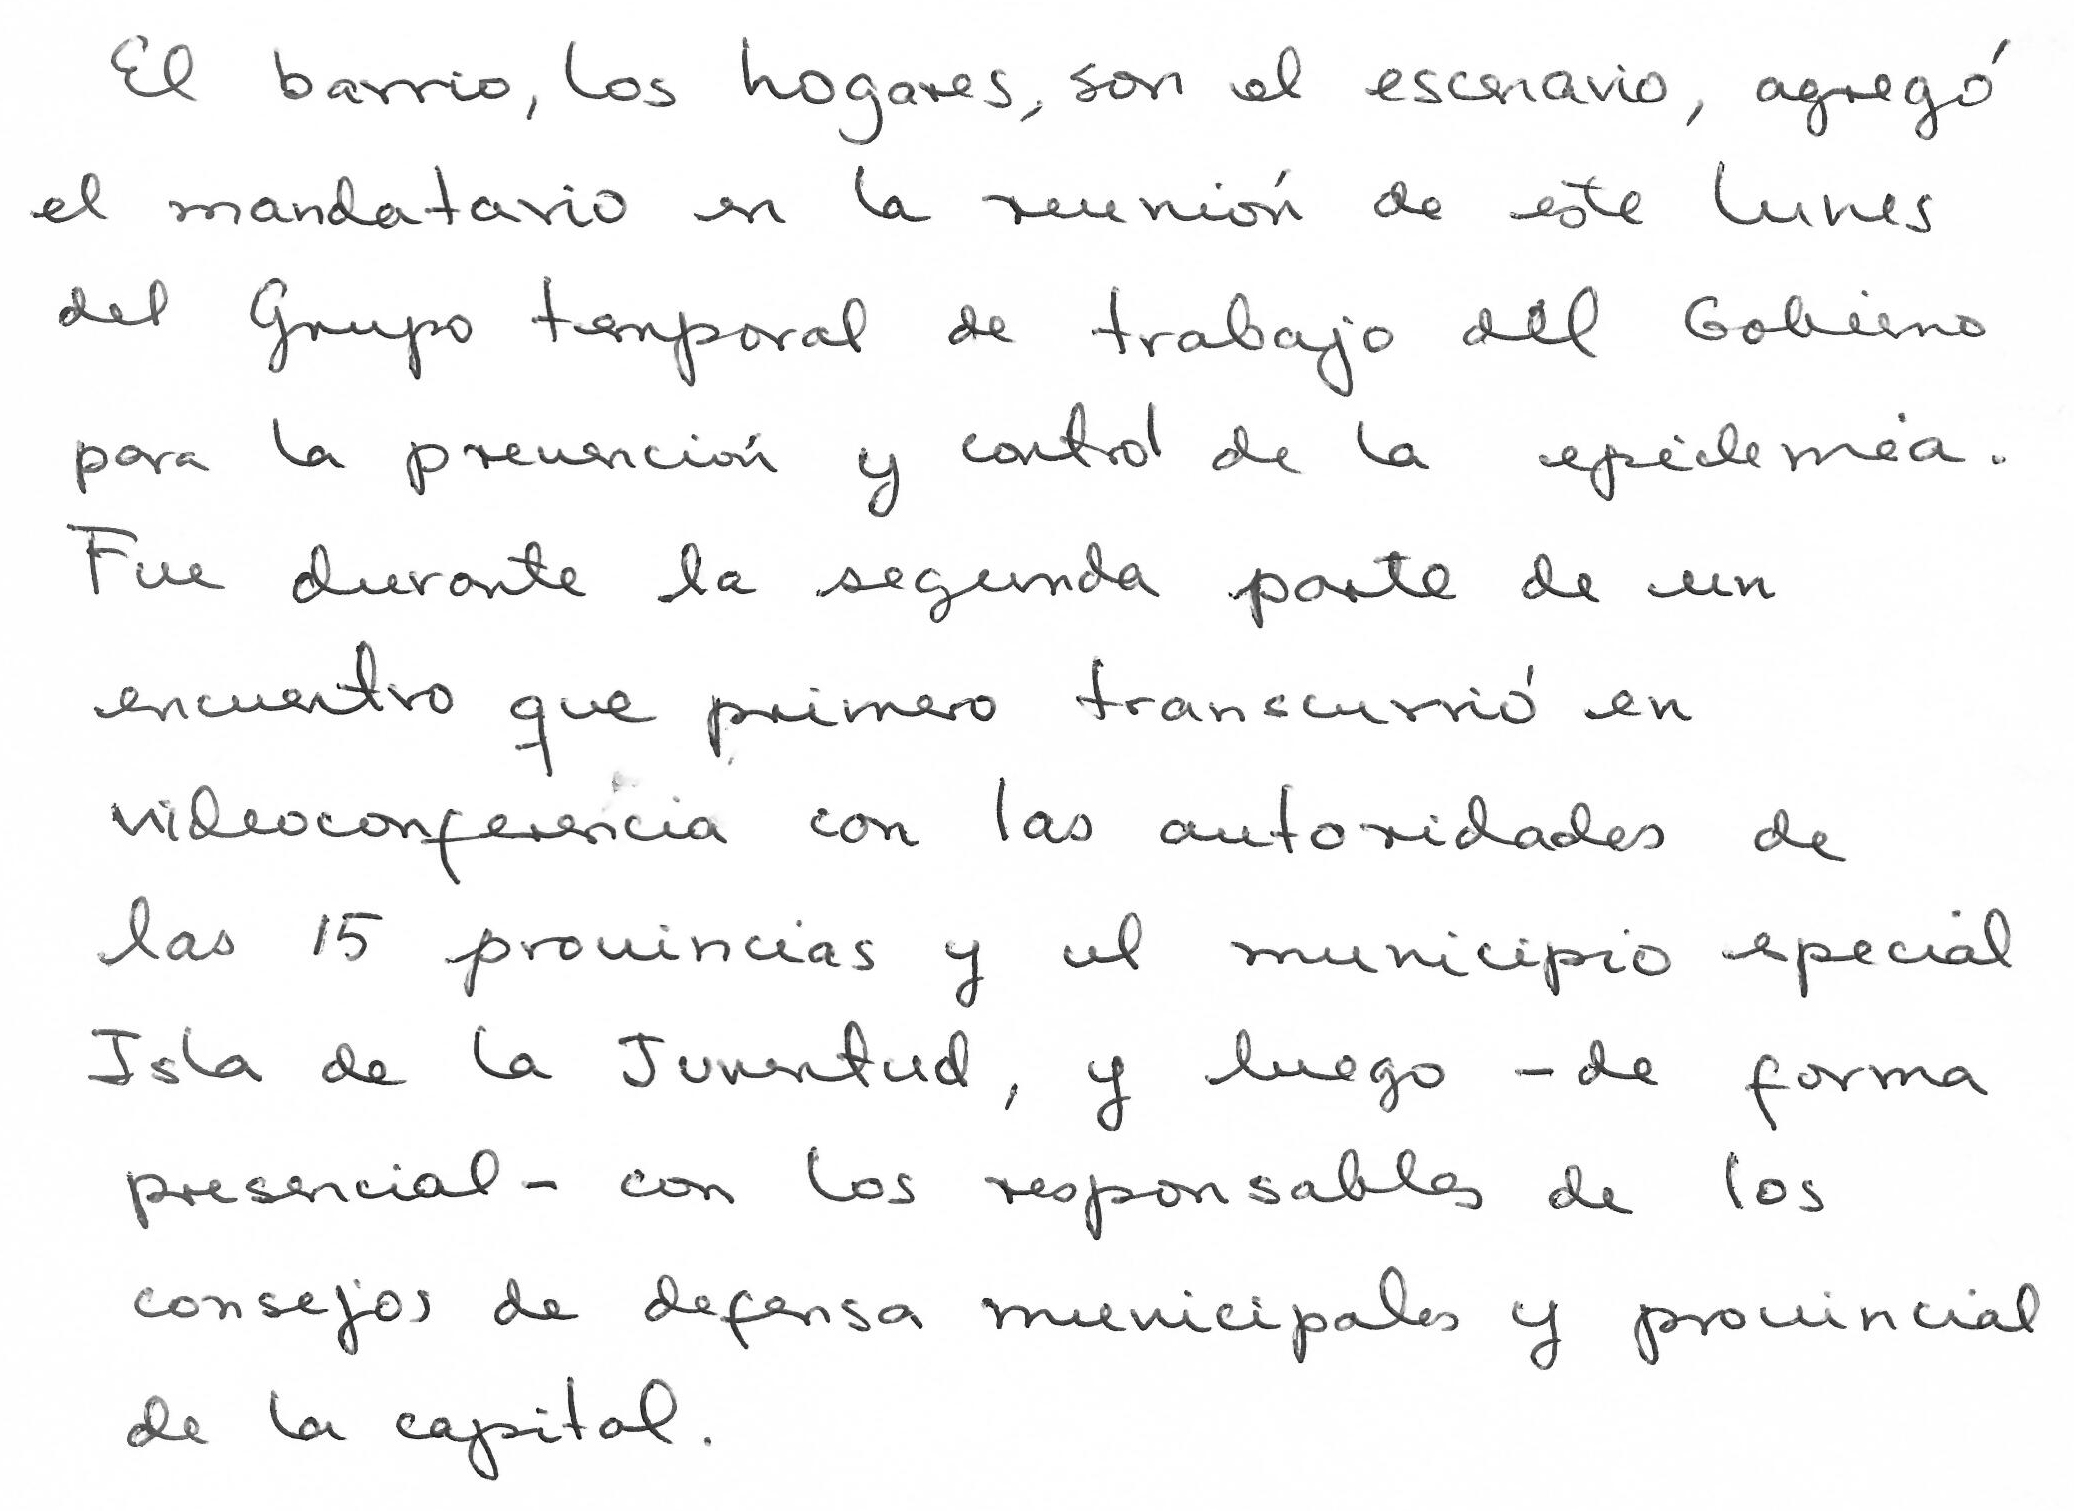 El barrio, los hogares, son el escenario, agregó
el mandatario en la reunión de este lunes
del Grupo temporal de trabajo del Gobierno
para la prevención y control de la epidemia.
Fue durante la segunda parte de un
encuentro que primero transcurrió en
videoconferencia con las autoridades de
las 15 provincias y el municipio especial
Isla de la Juventud, y luego -de forma
presencial- con los responsables de los
consejos de defensa municipales y provincial
de la capital.